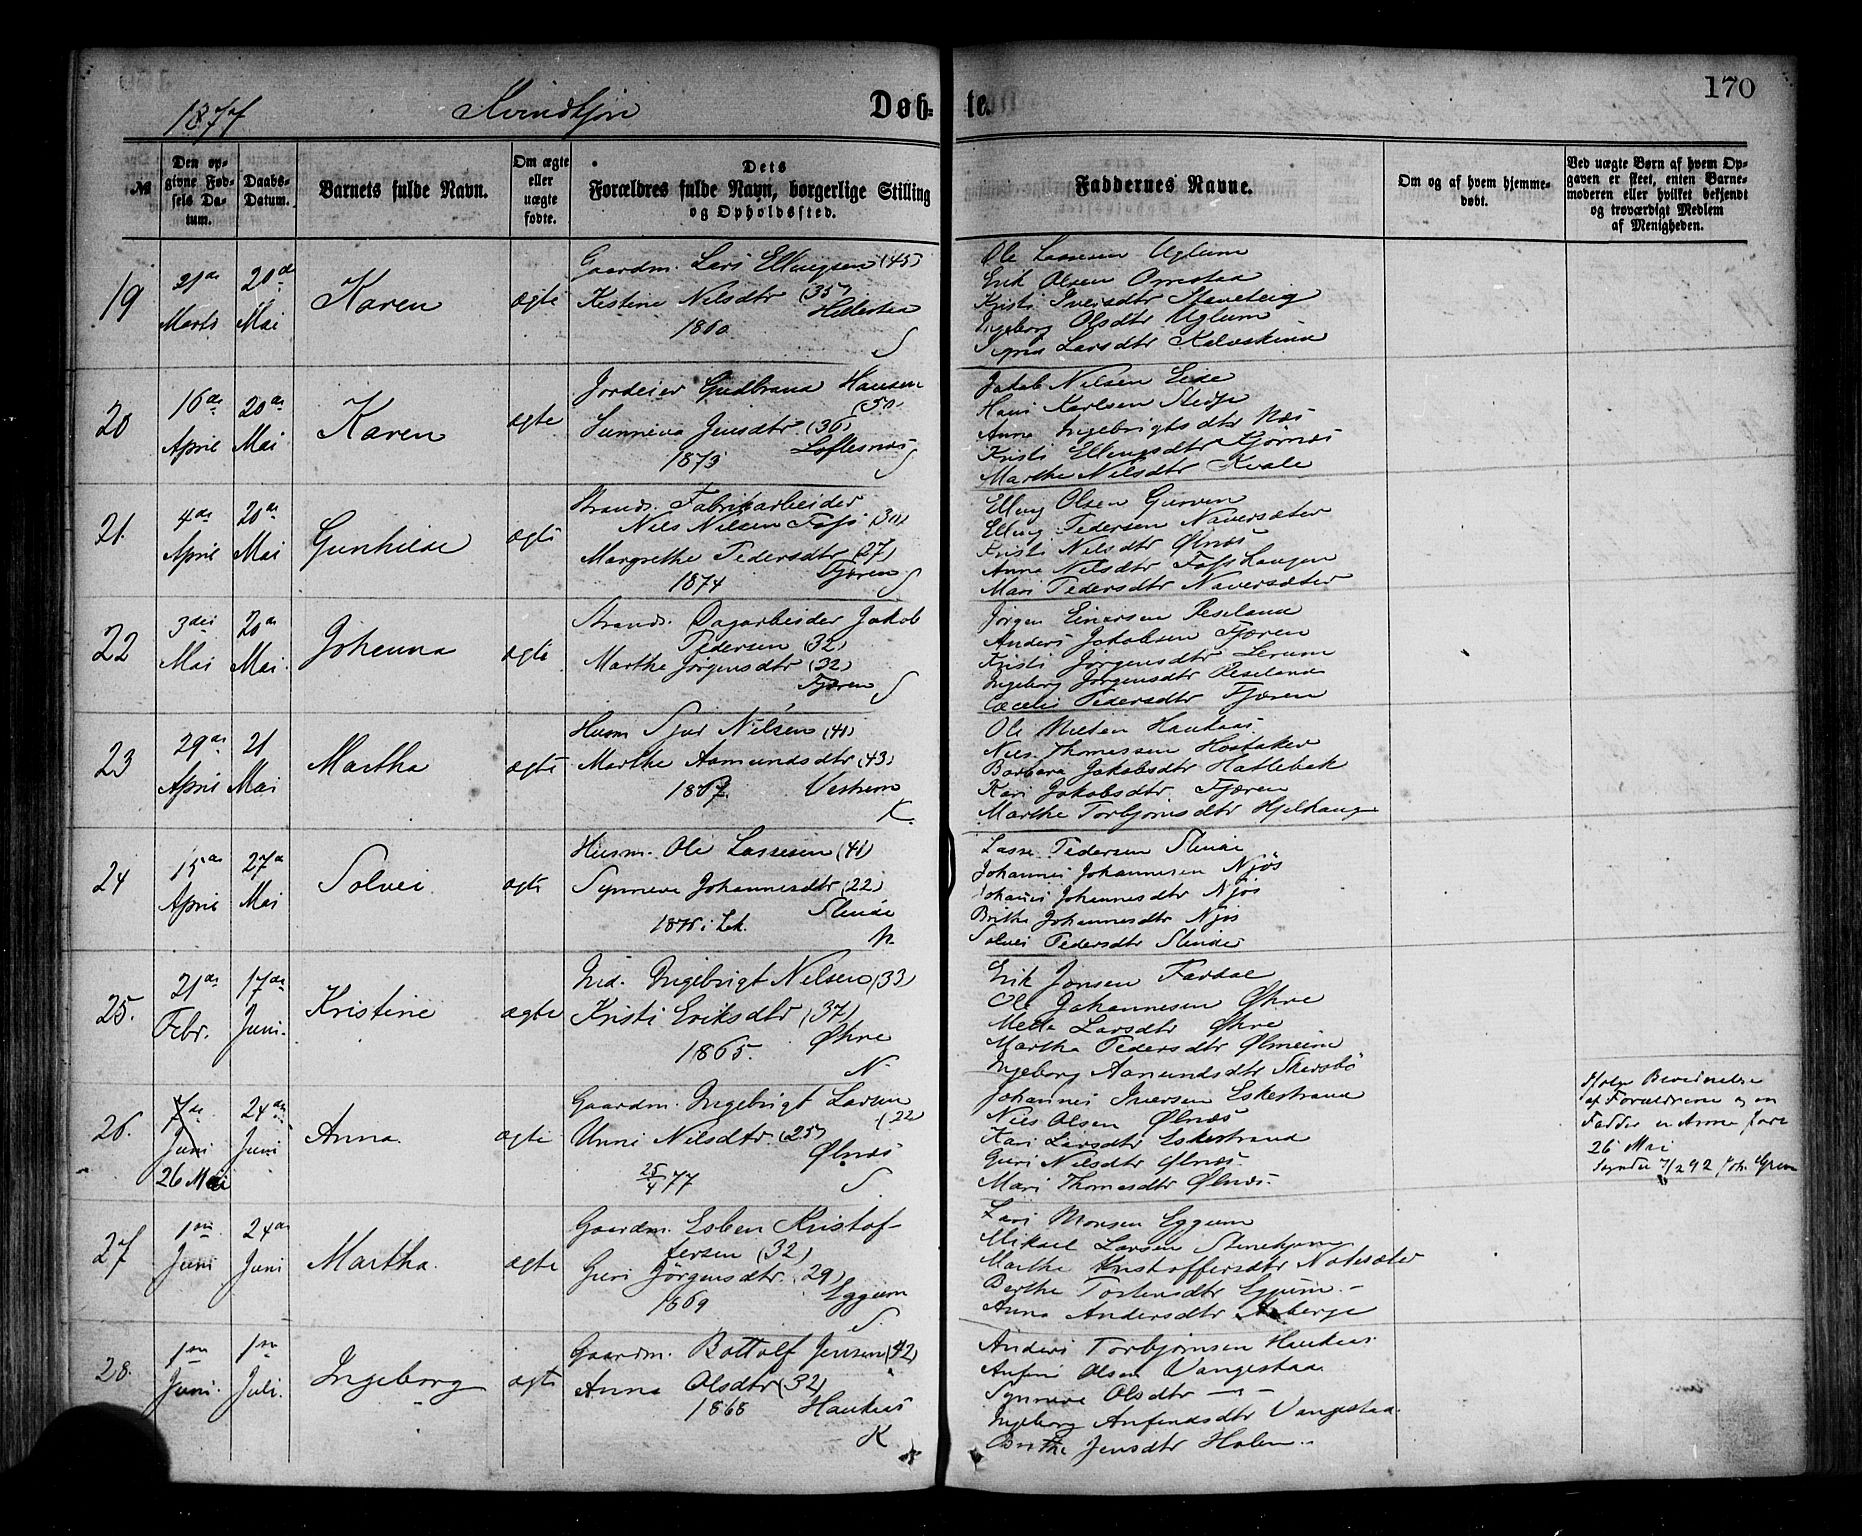 170
1877 Kvindkjøn Døb- te.
№
Den opgivne Fødsels Datum.
Daabs-Datum.
Barnets fulde Navn.
Om ægte eller uægte fødte.
Dets Forældres fulde Navn, borgerlige Stilling og Opholdssted.
Faddernes Navne.
Om og af hvem hjemmedøbt.
Ved uægte Børn af hvem Opgaven er skeet, enten Barnemoderen eller hvilket bekjendt og troværdigt Medlem af Menigheden.
19 21de Marts 20de Mai Karen ægte
Gaardm. Lars Ellingsen (45)
Kistine Nilsdtr (35)
1860 Hillestaa
S
Ole Lassesen Uglum
Erik Olsen Ornstaa
Kristi Iversdtr Stavteig
Ingeborg Olsdtr Uglum
Larsdtr Kalvskinn
20 16de April 20de Mai Karen ægte
Jordeier Gudbrand Hansen
(50)
Sunneva Jensdtr (36)
1873 Loftesnæs
S
Jakob Nilsen Eide
Hans Karlsen Stedje
Anna Ingebrigtsdtr Næs
Kristi Ellingsdtr Fjørnæs
Marthe Nilsdtr Kvale
21. 4de April 20de Mai Gunhilde ægte
Strands. Fabrikarbeider
Nils Nilsen Foss (30)
Margrethe Pedersdtr (27)
1874 Fjæren
S
Elling Olsen Gurven
Elling Pedersen Naversæter
Kristi Nilsdtr Ølnæs
Anna Nilsdtr Fosshaugen
Mari Pedersdtr Naversæter
22 3die Mai 20de Mai. Johanna ægte
Strands. Dagarbeider Jakob
Pedersen (32)
Marthe Jørgensdtr (32)
Fjæren S
Jørgen Einersen Reseland
Anders Jakobsen Fjæren
Kristi Jørgensdtr Lerum
Ingeborg Jørgensdtr Reseland
Cecelie Pedersdtr Fjæren
23 29de April 21 Mai Martha ægte
Husm Sjur Nilsen (41)
Marthe Aamundsdtr (43)
1867. Vestrem
K.
Ole Haukaas
Nils Thomessen Hostaker
Barbara Jakobsdtr Hatlebak
Kari Jakobsdtr Fjæren
Marthe Torbjørnsdtr Hjelhaug
24 15de April 27de Mai Solvei. ægte
Husm. Ole Lassesen (41)
Synneva Johannesdtr (22
1875 i Lek. Slinde
N.
Lasse Pedersen Slinde
Johannes Johannesen Njøs
Johannes Johannesdtr Njøs
Brithe Johannesdtr Njøs
Solvei Pedersdtr Slinde
25. 21de Febr. 17de Juni. Kristine ægte
Ind. Ingebrigt Nilsen (33)
Kristi Eriksdtr (37)
1865. Øhre
N.
Erik Jonsen Fardal
Ole Johannesen Øhre
Mette Larsdtr Øhre
Martha Pedersdtr Ølmeim
Ingeborg Aamundsdtr Skersbø
26. 7de Juni 26 Mai 24de Juni Anna. ægte
Gaardm. Ingebrigt Larsen
(22
Unni Nilsdtr. (25)
25/4 77 Ølnæs
S
Johannes Iversen Eskestrand
Nils Olsen Ølnæs
Kari Larsdtr Eskestrand
Guri Nilsdtr Ølnæs.
Mari Thomesdtr Ølnæs.
Ifølge Bevidnelse
af Forældrene og en
Fadder er Anna født
26 Mai
Sogndal 7/2 92 Joh.
27 1ste Juni 24de Juni Martha. ægte
Gaardm. Esben Kristof-
fersen (32)
Guri Jörgensdtr. (29)
1869 Eggum
S.
Lars Monsen Eggum
Mikael Larsen Stenehjem
Marthe Kristoffersdtr Notesæter
Berthe Torstensdtr Eggum. -
Anna Andersdtr Aaberge
28. 1ste Juni. 1ste Juli. Ingeborg ægte
Gaardm. Bottolf Jensen (42)
Anna Olsdtr (32)
1868 Haukaas
K
Anders Torbjørnsen Haukaas.
Anfin Olsen Vangestaa
Synneve Olsdtr — " —
Ingeborg Anfindsdtr Vangestaa.
Brithe Jensdtr Holen..